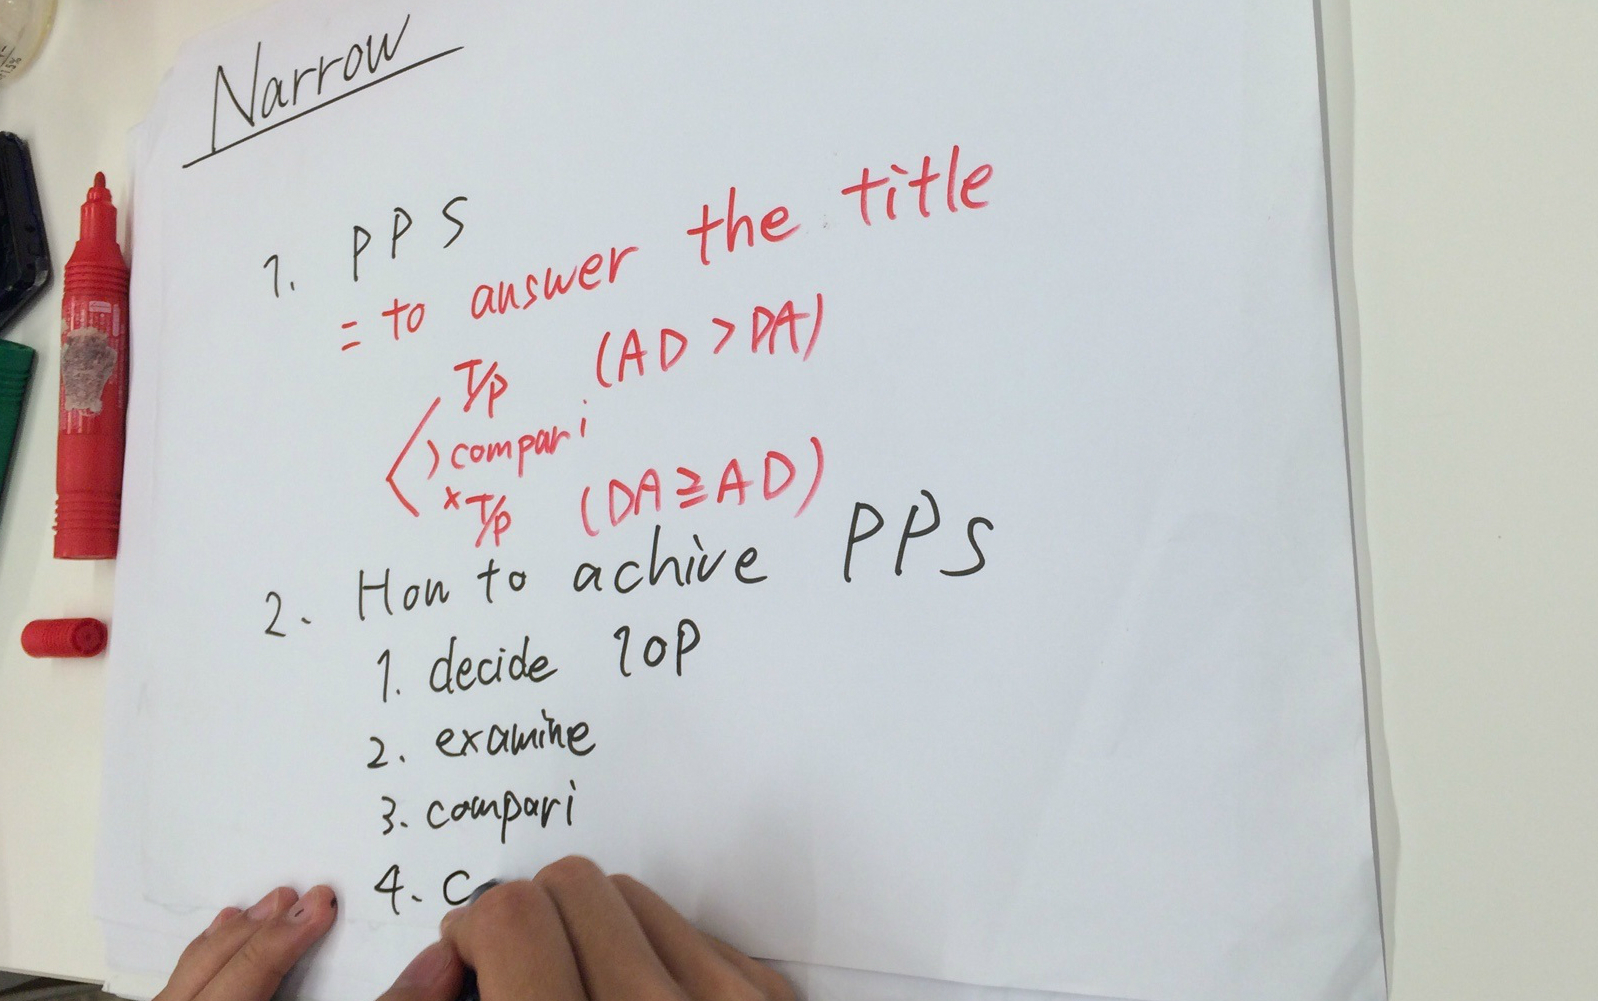 Narrow
1. PPS
= to answer the title
T/P (AD > DA)
) compari
× T/P (DA ≧ AD)
2. How to achive PPS
1. decide 1oP
2. examine
3. compari
4. C